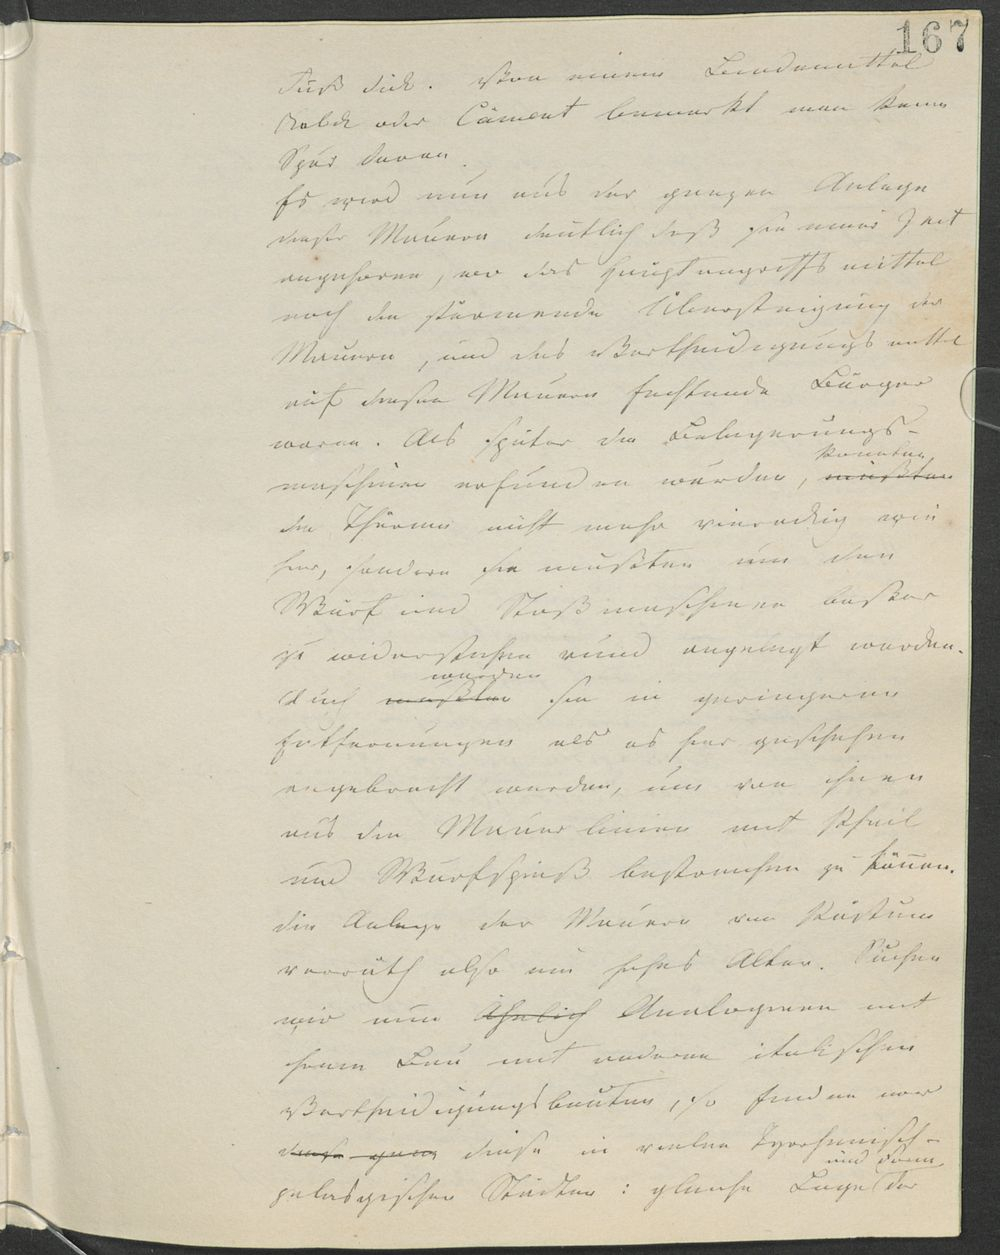 167
Fuß dick. Von einem Bindemittel
Kalk oder Cäment bemerkt man keine
Spur davon.
Es wird nun aus der ganzen Anlage
dieser Mauern deutlich daß sie einer Zeit
angehören, wo das Hauptangriffsmittel
noch die stürmende Übersteigung der
Mauern, und das Vertheidigungsmittel
auf diesen Mauern fechtende Bürger
waren. Als später die Belagerungs-
konnten
maschinen erfunden wurden, mußten
die Thürme nicht mehr viereckig wie
hier, sondern sie mußten um den
Wurf und Stoßmaschinen besser
zu widerstehen rund angelegt werden.
wurden
Auch mußten sie in geringeren
Entfernungen als es hier geschehen
angebracht werden, um von ihnen
aus die Mauerlinien mit Pfeil
und Wurfspieß bestreichen zu können.
die Anlage der Mauern von Pästum
verräth also ein hohes Alter. Suchen
wir nun ähnlich Analogieen mit
ihrem Bau mit anderen italischen
Vertheidigungsbauten, so finden wir
diese in vielen Tyrrhenisch-
und Form
pelasgischen Städten: gleiche Lage der